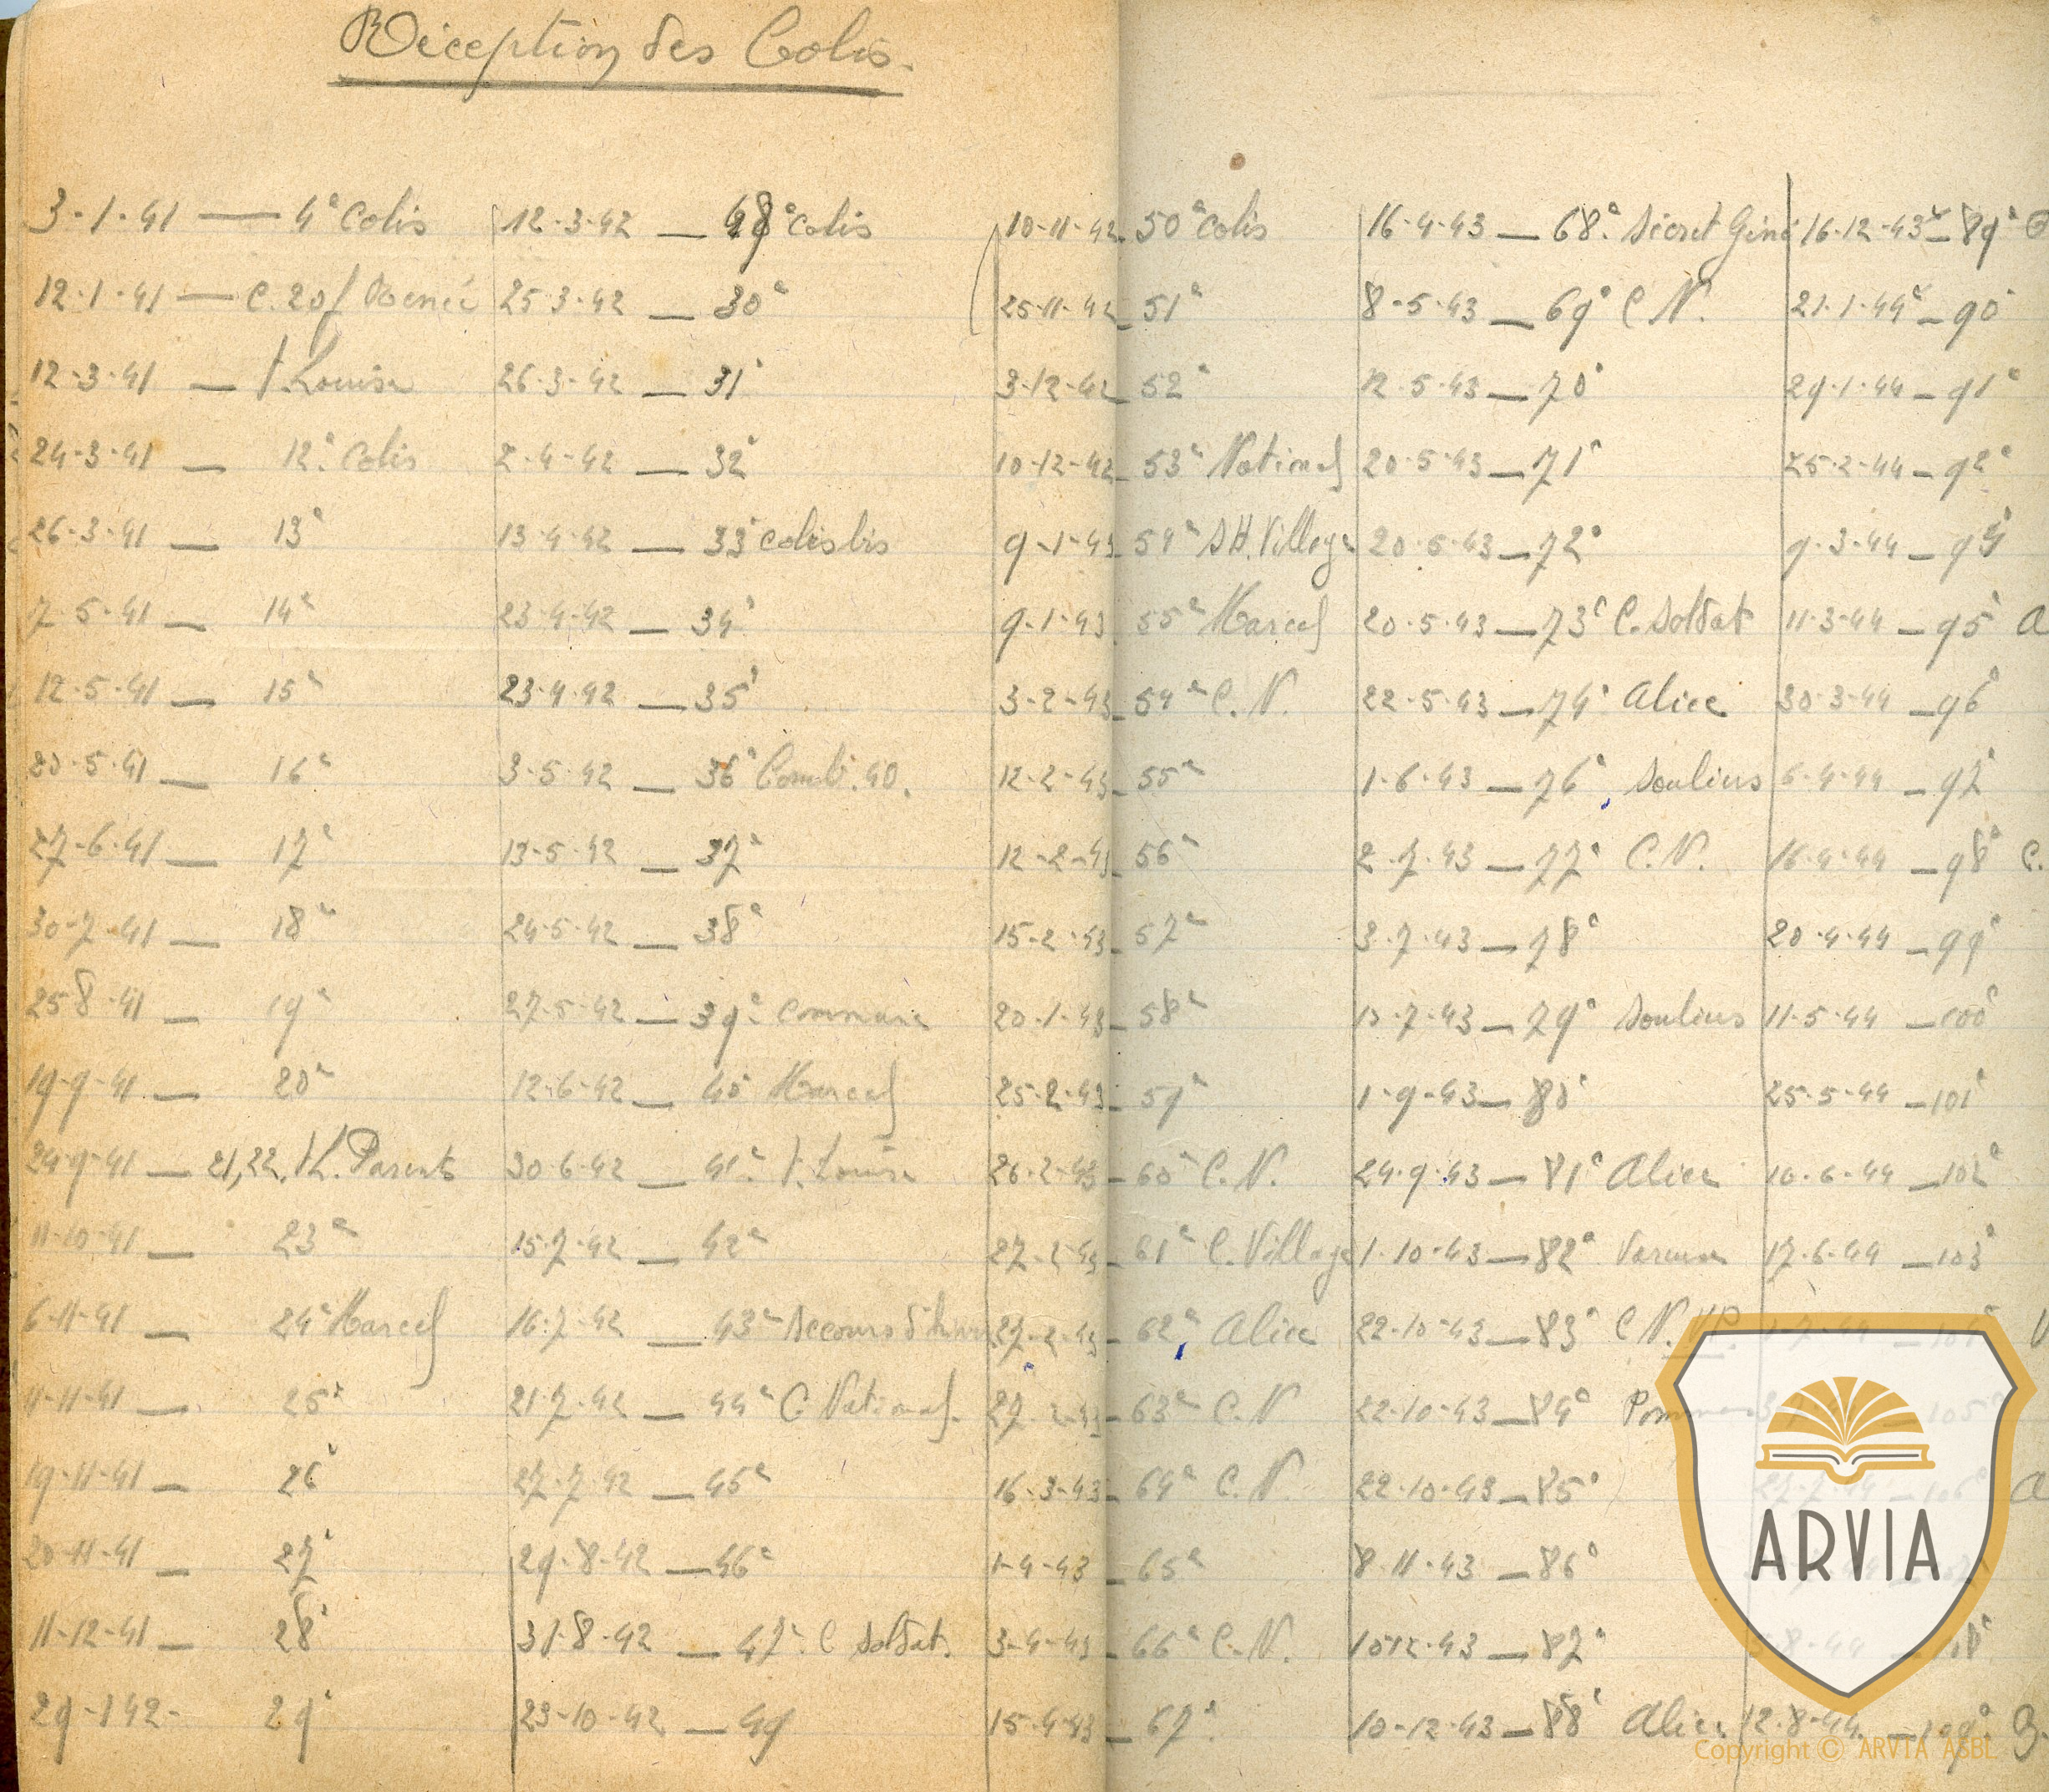 Réception des Colis.
3-1-41 — 4e colis
12-1-41 — C. 20f Renée
12-3-41 — t. Louise
24-3-41 — 12e Colis
26-3-41 — 13e
7-5-41 — 14e
12-5-41 — 15e
20-5-41 — 16e
27-6-41 — 17e
30-7-41 — 18e
25-8-41 — 19e
19-9-41 — 20e
24-9-41 — 21, 22, t L. Parents
11-10-41 — 23e
6-11-41 — 24e Marcel
11-11-41 — 25e
19-11-41 — 26e
20-11-41 — 27e
11-12-41 — 28e
29-1 42- 29e
12-3-42 — colis
25-3-42 — 30e
26-3-42 — 31e
2-4-42 — 32e
13-4-42 — 33e colis bis
23-4-42 — 34e
23-4-42 — 35e
3-5-42 — 36e Comb. 40.
13-5-42 — 37e
24-5-42 — 38e
27-5-42 — 39e commune
12-6-42 — 40e Marcel
30-6-42 — 41e t. Louise
15-7-42 — 42e
16-7-42 — 43e Secours d'hiver
21-7-42 — 44e C. National.
27-7-42 — 45e
29-8-42 — 46e
31-8-42 — 47e C soldat.
23-10-42 — 49
10-11-42 — 50e colis
25-11-42 — 51e
3-12-42 — 52e
10-12-42 — 53e National
9-1-43 — 54e S H. Village
9-1-43 55e Marcel
3-2-43 — 54e C. N.
12-2-43 — 55e
12-2-43 — 56e
15-2-43 — 57e
20-1-43 — 58e
25-2-43 — 59e
26-2-43 — 60e C. N.
27-2-43 — 61e C. Village
27-2-43 — 62e Alice
27-2-43 — 63e C. N
16-3-43 — 64e C. N.
1-4-43 — 65e
3-4-43 — 66e C. N.
15-4-43 — 67e
16-4-43 — 68e Secret Géné
8-5-43 — 69e C N.
12-5-43 — 70e
20-5-43 — 71e
20-5-43 — 72e
20-5-43 — 73e C. Soldat
22-5-43 — 74e Alice
1-6-43 — 76e Soulius
2-7-43 — 77e C. N.
3-7-43 — 78e
-7-43 — 79e Soulius
1-9-43 — 80e
24-9-43 — 81e Alice
1-10-43 — 82e
22-10-43 — 83e C N. V.P.
22-10-43 — 84e
22-10-43 — 85e
8-11-43 — 86e
10-12-43 — 87e
10-12-43 — 88e Alice
16-12-43 — 89e
21-1-44 — 90e
29-1-44 — 91e
25-2-44 — 92e
9-3-44 —
11-3-44 — 95e A
30-3-44 — 96e
6-4-44 — 97e
16-4-44 — 98e C.
20-4-44 — 99e
11-5-44 — 100e
25-5-44 — 101e
10-6-44 — 102e
17-6-44 — 103e
1-7-44 — 104e V
105e
27-7-44 — 106e A
-8-44 — 108e
12-8-44 — 109e
ARVIA
Copyright © ARVIA ASBL